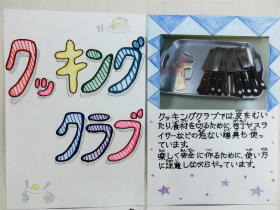 クッキング
クラブ
クッキングクラブでは、皮をむい
たり、食材を切るために、包丁やスラ
イサーなどの危ない道具も使っ
ています。
楽しく安全に作るために、使い方
に注意しながらやっています。